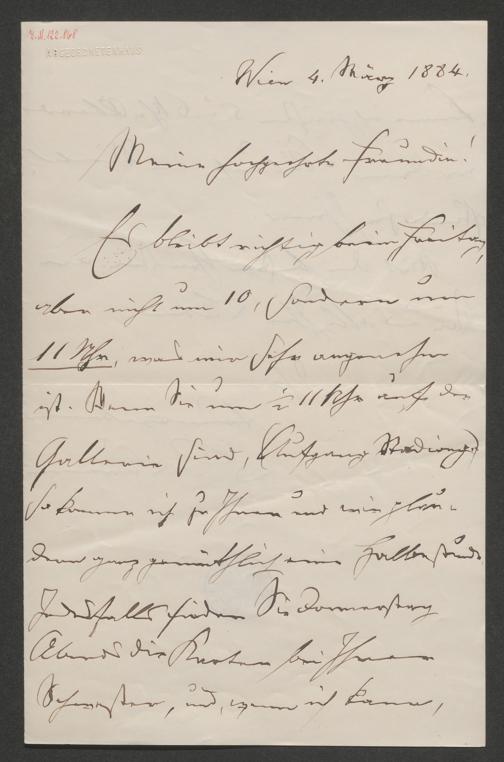 I.N. 122.868
ABGEORDNETENHAUS
Wien 4. März 1884.
Meine hochgeehrte Freundin!
Es bleibt richtig beim Freitag,
aber nicht um 10, sondern um
11 Uhr, was mir sehr angenehm
ist. Wenn Sie um ½ 11 Uhr auf der
Gallerie sind, (Aufgang Stadiong.)
so komme ich zu Ihnen und wir plau-
dern ganz gemüthlich eine halbe Stunde.
Jedesfalls finden Sie Donnerstag
Abends die Karten bei Ihrer
Schwester, und, wenn ich kann,